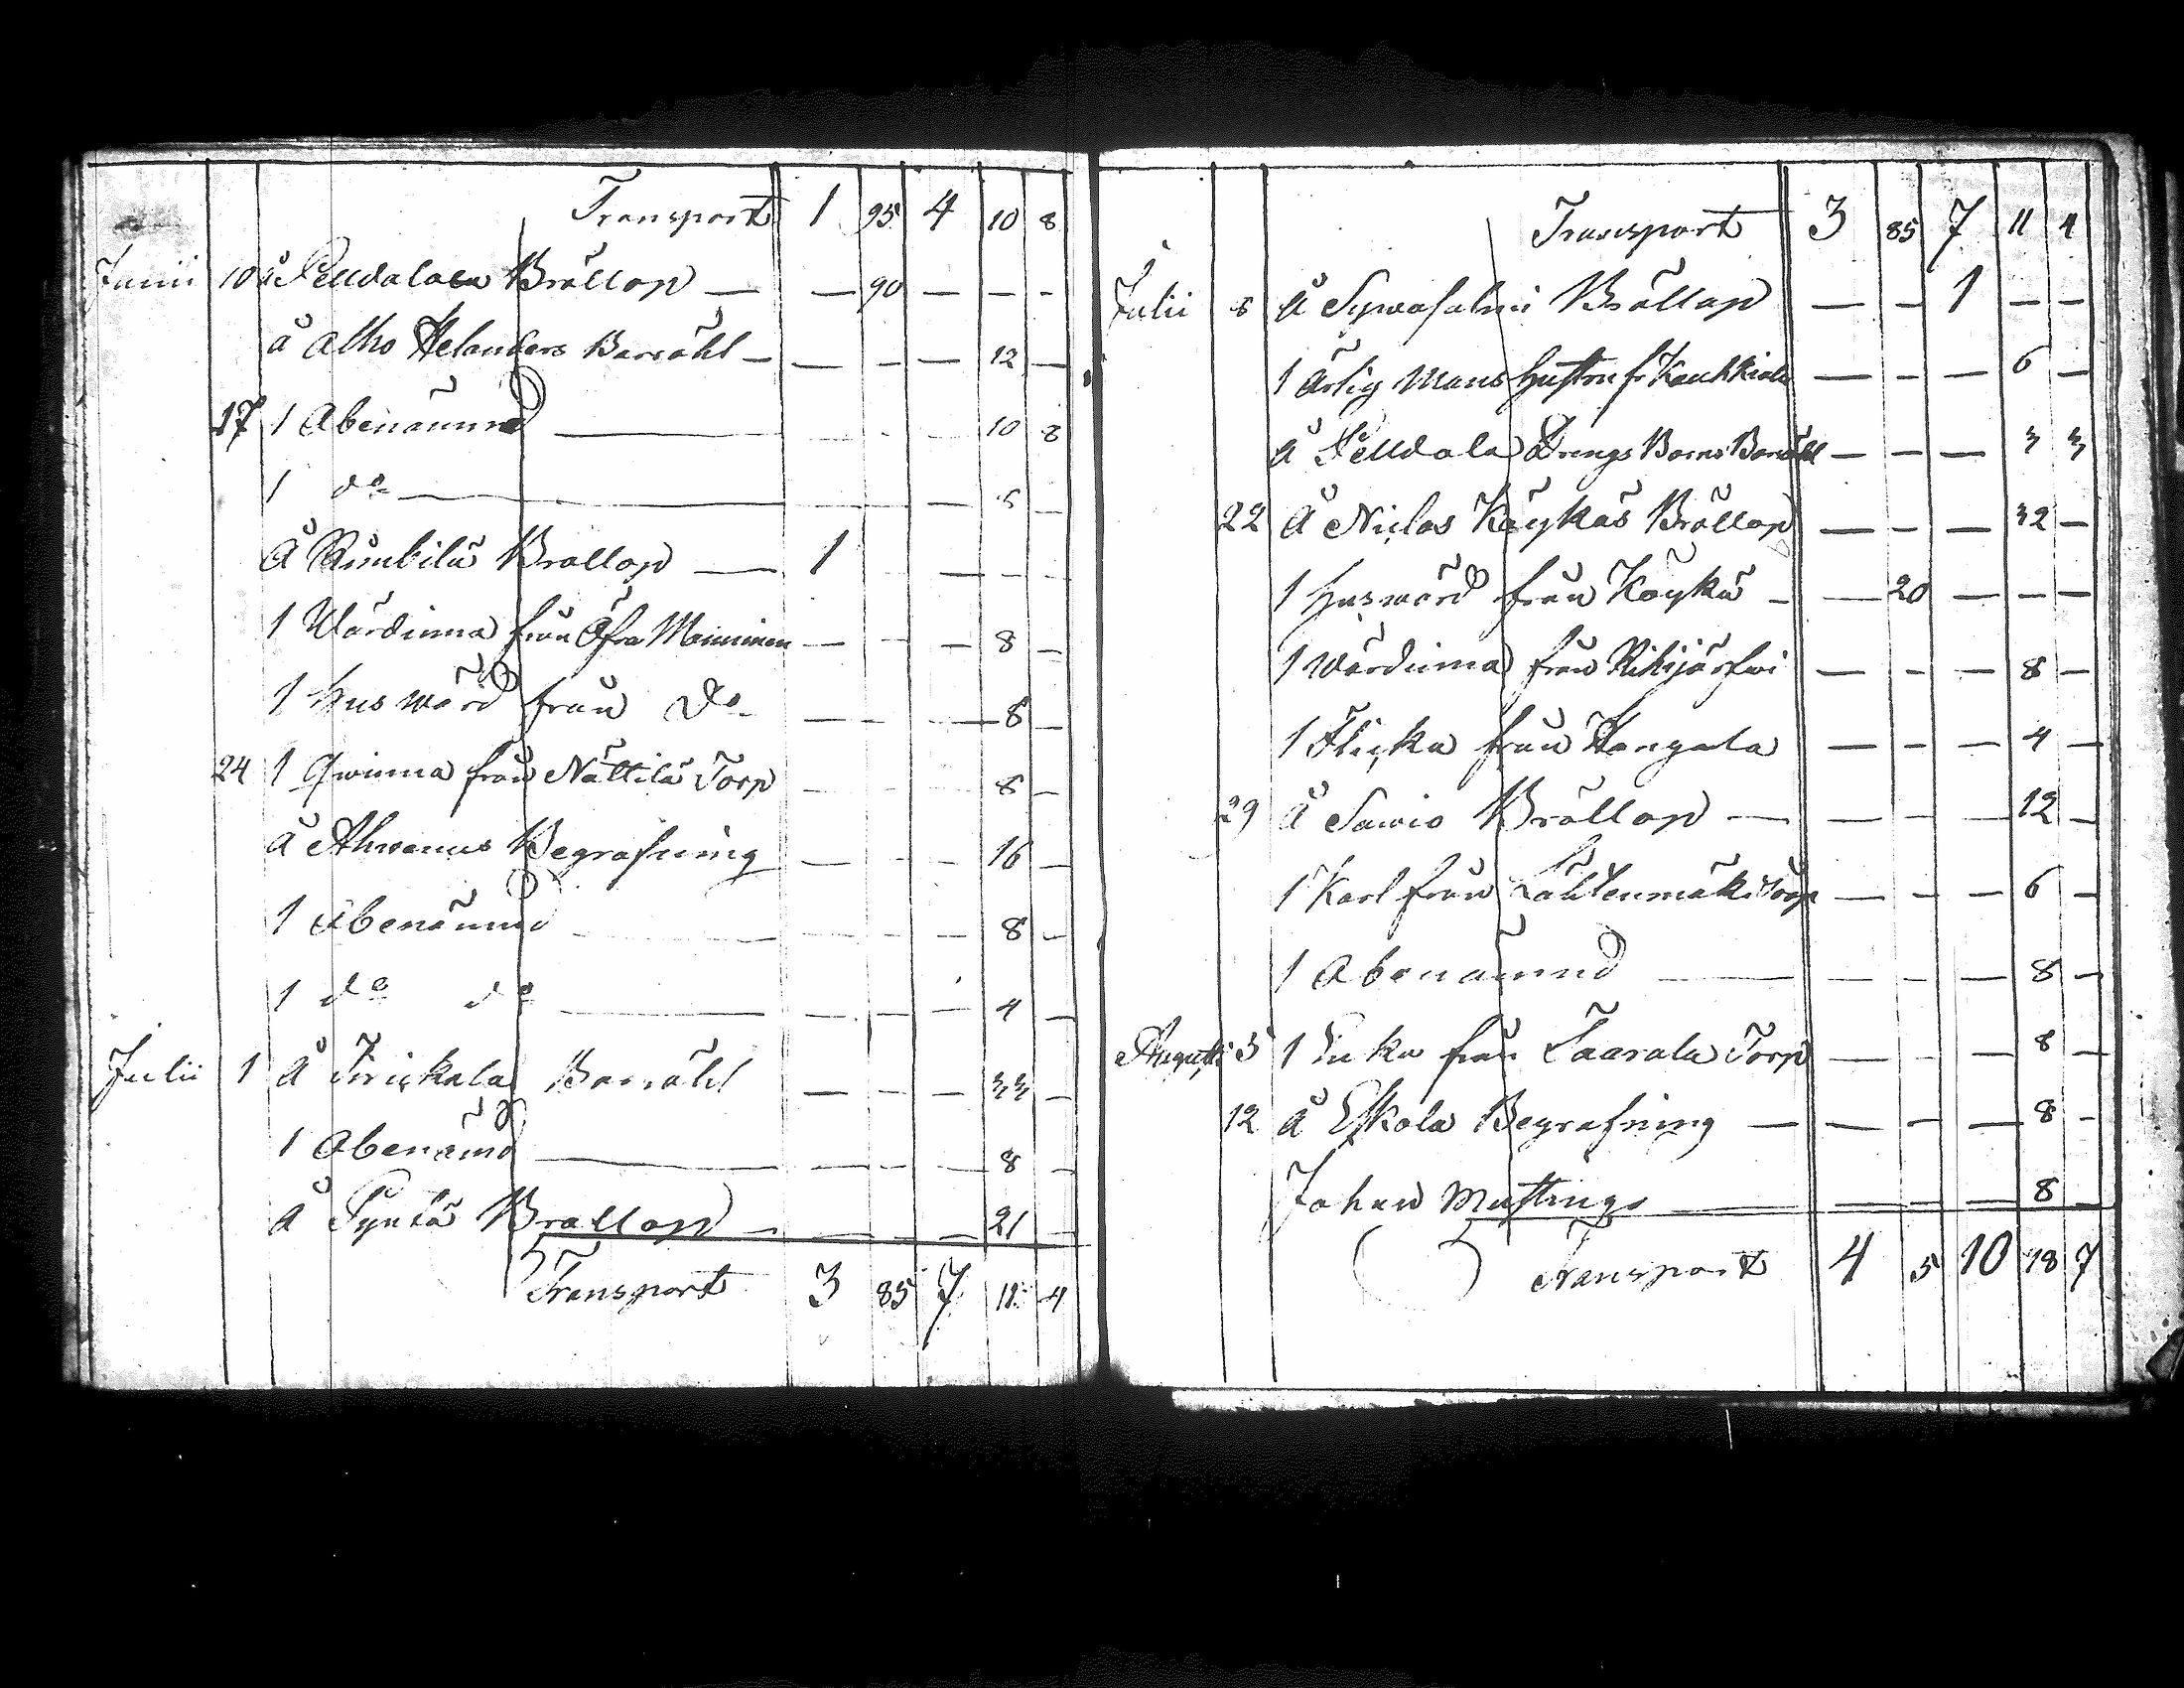 Transport 1 95 4 10 8
Junii 10 å Pelldalala Bröllop — — 90 — — -
å Alho Helanders Barsöhl — — - — 12 —
17 1 Obenämnd — - - - 10 8
1 do — — - — 6 —
å Runkila Bröllop — 1 - — - -
1 Wärdinna från Öfra Meininen — - — 8 —
1 Huswärd från Do — - — 8 —
24 1 Qwinna från Nättilä Torp — - - 8 —
å Ahwenus Begrafning — - — 16 —
1 Obenämnd — - — 8 —
1 do do — - — 4 —
Julii 1 å Jirickala Barsöhl — - — 33 —
1 Obenämd — - — 8 —
å Pyntä Bröllop — — - — 21 —
Transport 3 85 7 11 4
Transport 3 85 7 11 4
Julii 8 å Sywäsalmi Bröllop — - 1 — —
1 Ärlig Mans Hustru fr Kaukkiala — - — 6 —
å Pelldala Drengs Barns Barsöhl — - — 3 3
22 å Niclas Köykäs Bröllop — - — 32 —
1 Huswärd från Köykä — — 20 — — —
1 Wärdinna från Rihijärfwi — - — 8 —
1 Flicka från Kangala — - — 4 —
29 å Sawio Bröllop — — - — 12 —
1 Karl från Lähtenmäki Torp — - — 6 —
1 Obenämnd — — - — 8 —
Augusti 5 1 Enka från Taarala Torp — - — 8 —
12 å Eskola Begrafning — — - — 8 -
Johan Mustings — — — — 8 —
Transport 4 5 10 18 7